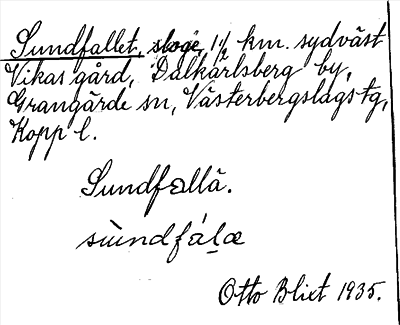 Sundfallet, skogs, 1½ km. sydväst
Vikas gård, Dalkärlsberg by,
Grangärde sn, Västerbergslags tg,
Kopp l.
Sundfallä.
sùndfáḷæ
Otto Blixt 1935.